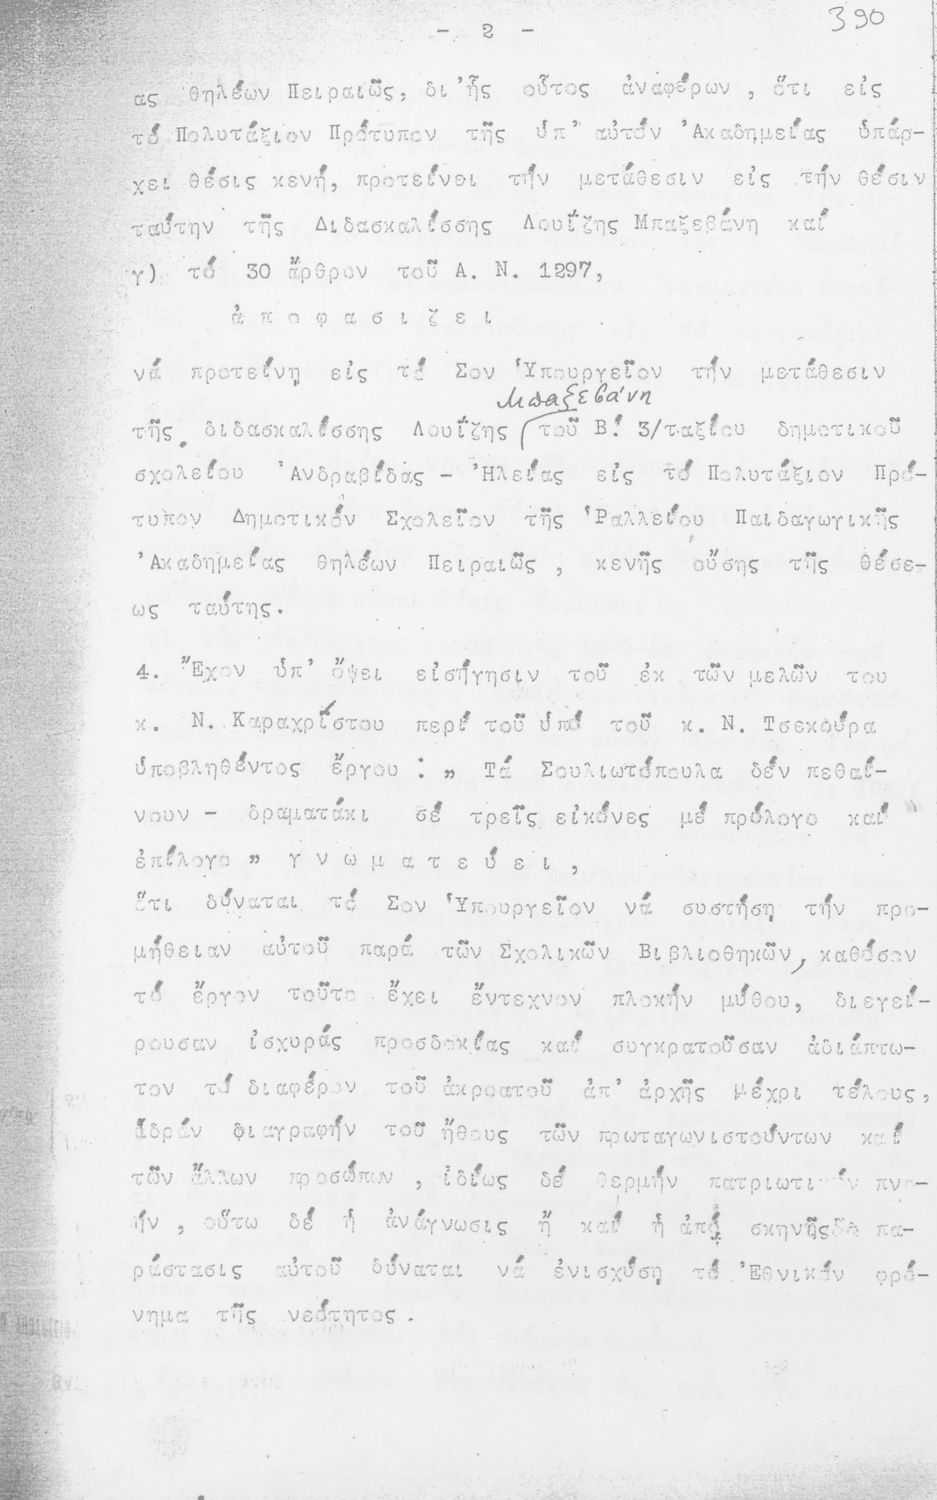 390
- 2 -
ας θηλέων Πειραιῶς, δι᾽ἧς οὗτος ἀναφέρων , ὅτι εἰς
τό Πολυτάξιον Πρότυπον τῆς ὑπ᾽ αὐτόν ᾽Ακαδημείας ὑπάρ-
χει θέσις κενή, προτείνει τήν μετάθεσιν εἰς τήν θέσιν
ταύτην τῆς Διδασκαλίσσης Λουΐζης Μπαξεβάνη καί
γ) τό 30 ἄρθρον τοῦ Α. Ν. 1297,
ἀ π ο φ α σ ι ζ ε ι
νά προτείνη εἰς τό Σον Ὑπουργεῖον τήν μετάθεσιν
Μπαξεβάνη
τῆς διδασκαλίσσης Λουΐζης τοῦ Β! 3/ταξίου δημοτικοῦ
σχολείου ᾽Ανδραβίδας - ᾽Ηλείας εἰς τό Πολυτάξιον Πρό-
τυπον Δημοτικόν Σχολεῖον τῆς Ῥαλλείου Παιδαγωγικῆς
᾽Ακαδημείας θηλέων Πειραιῶς , κενῆς οὔσης τῆς θέσε-
ως ταύτης.
4. Ἔχον ὑπ᾽ ὄψει εἰσήγησιν τοῦ ἐκ τῶν μελῶν του
κ. Ν. Καραχρίστου περί τοῦ ὑπό τοῦ κ. Ν. Τσεκούρα
ὑποβληθέντος ἔργου : „ Τά Σουλιωτόπουλα δέν πεθαί-
νουν - δραματάκι σέ τρεῖς εἰκόνες μέ πρόλογο καί
ἐπίλογο „ γ ν ω μ α τ ε ύ ε ι ,
ὅτι δύναται τό Σον Ὑπουργεῖον νά συστήση τήν προ-
μήθειαν αὐτοῦ παρά τῶν Σχολικῶν Βιβλιοθηκῶν, καθόσον
τό ἔργον τοῦτο ἔχει ἔντεχνον πλοκήν μύθου, διεγεί-
ρουσαν ἰσχυράς προσδοκίας καί συγκρατοῦσαν ἀδιάπτω-
τον τό διαφέρον τοῦ ἀκροατοῦ ἀπ᾽ ἀρχῆς μέχρι τέλους,
ἁδράν διαγραφήν τοῦ ἤθους τῶν πρωταγωνιστούντων καί
τῶν ἄλλων προσώπων , ἰδίως δέ θερμήν πατριωτικήν πνο-
ήν , οὕτω δέ ἡ ἀνάγνωσις ἤ καί ἡ ἀπό σκηνῆς πα-
ράστασις αὐτοῦ δύναται νά ἐνισχύση τό ᾽Εθνικόν φρό-
νημα τῆς νεότητος .